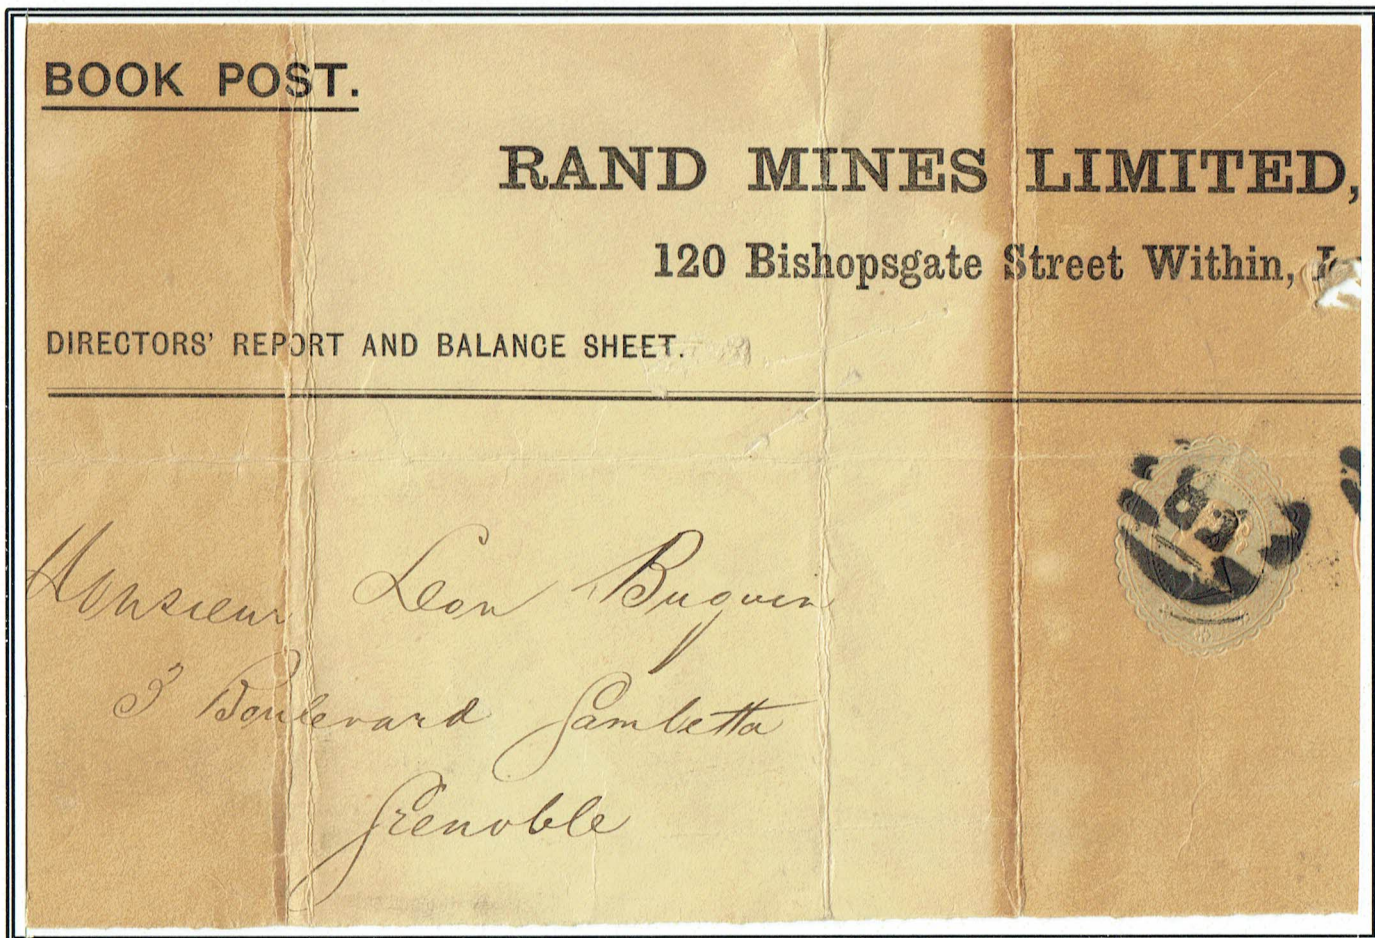 BOOK POST.
RAND MINES LIMITED,
120 Bishopsgate Street Within,
DIRECTORS' REPORT AND BALANCE SHEET.
Monsieur Leon
3 Boulevard Gambetta
Grenoble